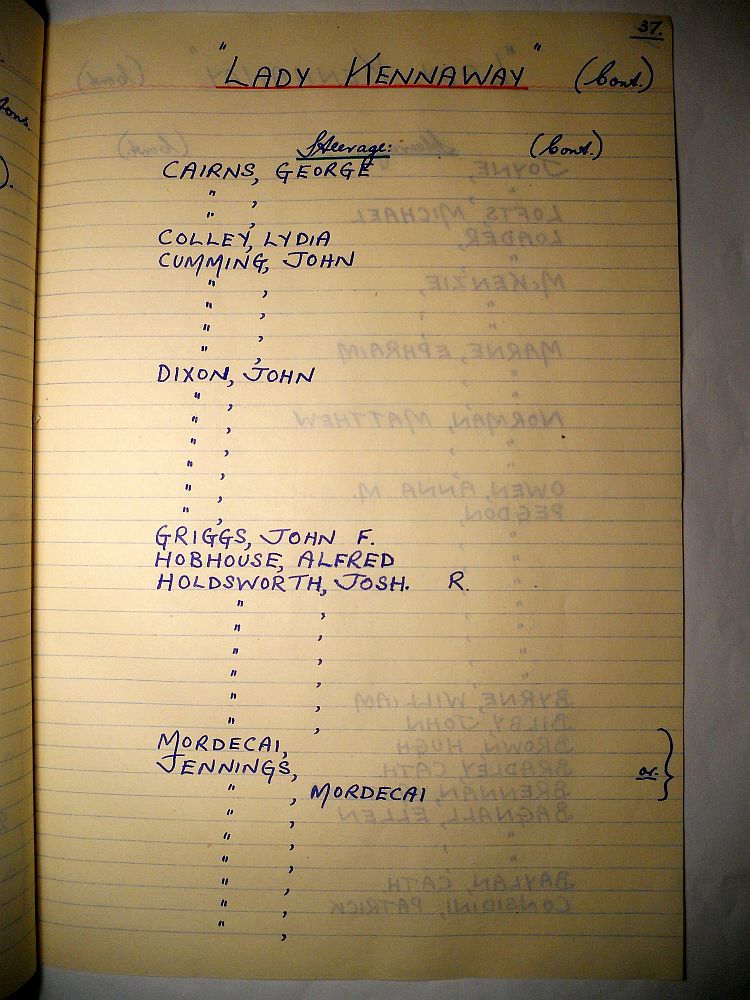 37.
"LADY KENNAWAY" (Cont.)
Steerage: (Cont.)
CAIRNS, GEORGE
" ,
" ,
COLLEY, LYDIA
CUMMING, JOHN
" ,
" ,
" ,
" ,
DIXON, JOHN
" ,
" ,
" ,
" ,
" ,
" ,
GRIGGS, JOHN F.
HOBHOUSE, ALFRED
HOLDSWORTH, JOSH. R.
" ,
" ,
" ,
" ,
" ,
" ,
MORDECAI,
JENNINGS, or.
" , MORDECAI
" ,
" ,
" ,
" ,
" ,
" ,